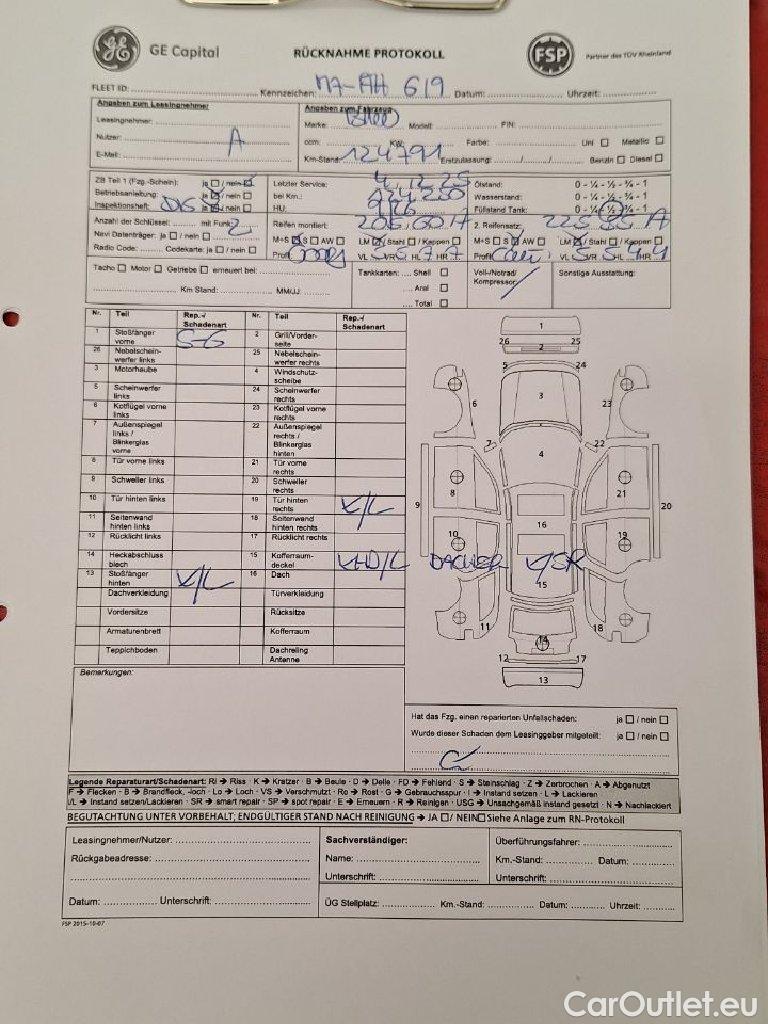 GE Capital
RÜCKNAHME PROTOKOLL
FSP
Partner des TÜV Rheinland
FLEET ID: Kennzeichen: MA-AH 619 Datum: Uhrzeit:
Angaben zum Leasingnehmer
Leasingnehmer:
Nutzer: A
E-Mail:
Angaben zum Fahrzeug
Marke Modell: FIN:
ccm: KW: Farbe: Uni Metallic
Km-Stand: 124791 Erstzulassung: Benzin Diesel
ZB Teil 1 (Fzg.-Schein): ja / nein
Betriebsanleitung: ja / nein
Inspektionsheft: ja / nein
Letzter Service: 4.12.25
bei Km.:
HU:
Ölstand: 0 - ¼ - ½ - ¾ - 1
Wasserstand: 0 - ¼ - ½ - ¾ - 1
Füllstand Tank: 0 - ¼ - ½ - ¾ - 1
Anzahl der Schlüssel: mit Funk: 2
Navi Datenträger: ja / nein
Radio Code: Codekarte: ja / nein
Reifen montiert:
M+S S AW LM / Stahl / Kappen
Profil VL VR HL HR
2. Reifensatz:
M+S S AW LM / Stahl / Kappen
Profil VL VR HL HR
Tacho Motor Getriebe erneuert bei:
Km Stand: MM/JJ:
Tankkarten: Shell
Aral
Total
Voll-/Notrad/
Kompressor:
Sonstige Ausstattung:
Nr. Teil Rep.-/ Schadenart Nr. Teil Rep.-/ Schadenart
1 Stoßfänger vorne S-G 2 Grill/Vorder-seite
26 Nebelschein-werfer links 25 Nebelschein-werfer rechts
3 Motorhaube 4 Windschutz-scheibe
5 Scheinwerfer links 24 Scheinwerfer rechts
6 Kotflügel vorne links 23 Kotflügel vorne rechts
7 Außenspiegel links / Blinkerglas vorne 22 Außenspiegel rechts / Blinkerglas hinten
8 Tür vorne links 21 Tür vorne rechts
9 Schweller links 20 Schweller rechts
10 Tür hinten links 19 Tür hinten rechts K/L
11 Seitenwand hinten links 18 Seitenwand hinten rechts
12 Rücklicht links 17 Rücklicht rechts
14 Heckabschluss blech 15 Kofferraum-deckel
13 Stoßfänger hinten K/L 16 Dach
Dachverkleidung Türverkleidung
Vordersitze Rücksitze
Armaturenbrett Kofferraum
Teppichboden Dachreling Antenne
1
26 2 25
5 24
6 3 23
7 22
4
9 8 21 20
16
10 19
15
11 18
14
12 17
13
Bemerkungen:
Hat das Fzg. einen reparierten Unfallschaden: ja / nein
Wurde dieser Schaden dem Leasinggeber mitgeteilt: ja / nein
Legende Reparaturart/Schadenart: RI → Riss · K → Kratzer · B → Beule · D → Delle · FD → Fehlend · S → Steinschlag · Z → Zerbrochen · A → Abgenutzt
F → Flecken · B → Brandfleck, -loch · Lo → Loch · VS → Verschmutzt · Ro → Rost · G → Gebrauchsspur · I → Instand setzen · L → Lackieren
I/L → Instand setzen/Lackieren · SR → smart repair · SP → spot repair · E → Erneuern · R → Reinigen · USG → Unsachgemäß instand gesetzt · N → Nachlackiert
BEGUTACHTUNG UNTER VORBEHALT, ENDGÜLTIGER STAND NACH REINIGUNG → JA / NEIN Siehe Anlage zum RN-Protokoll
Leasingnehmer/Nutzer:
Rückgabeadresse:
Datum: Unterschrift:
Sachverständiger:
Name:
Unterschrift:
Überführungsfahrer:
Km.-Stand: Datum:
Unterschrift:
ÜG Stellplatz: Km.-Stand: Datum: Uhrzeit:
FSP 2015-10-07
CarOutlet.eu